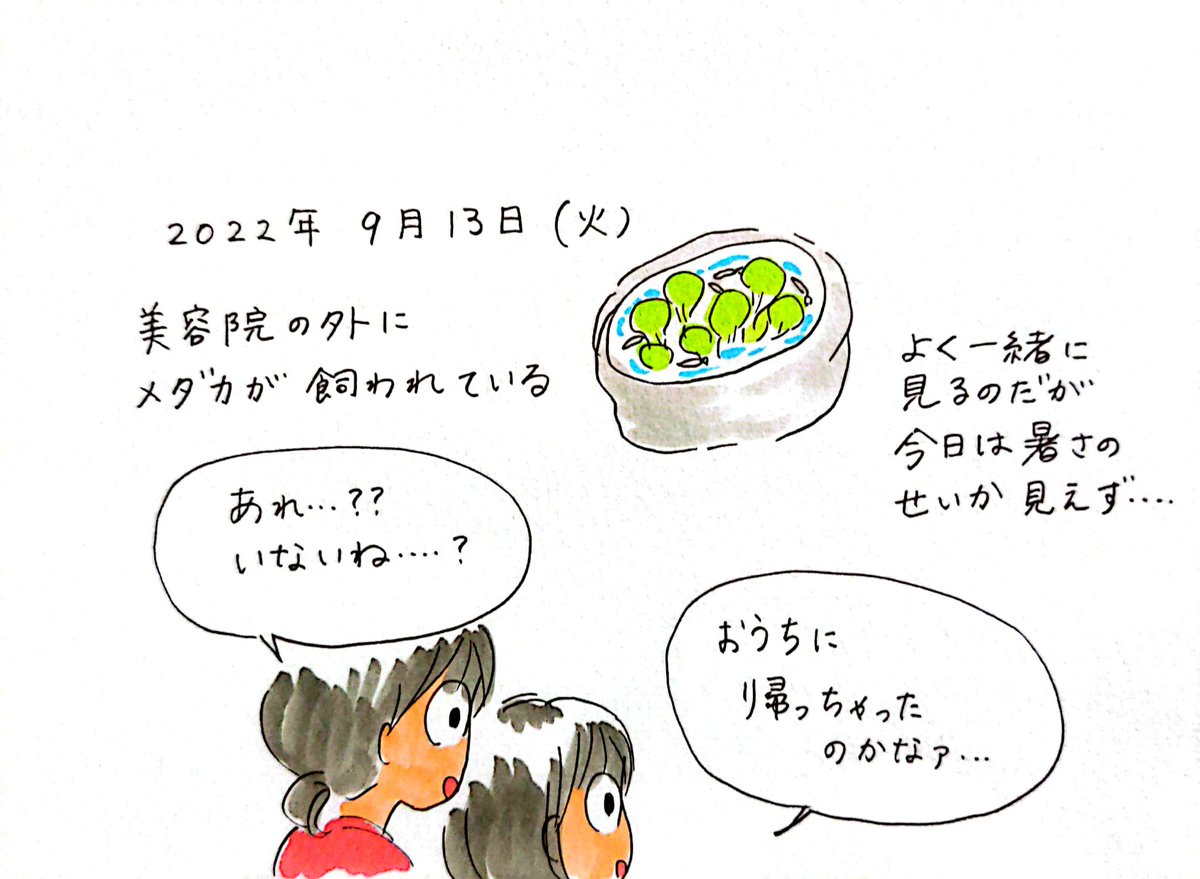 2022年 9月13日(火)
美容院の外に
メダカが 飼われている
よく一緒に
見るのだが
今日は暑さの
せいか 見えず‥‥
あれ…??
いないね‥‥?
おうちに
帰っちゃった
のかなァ…